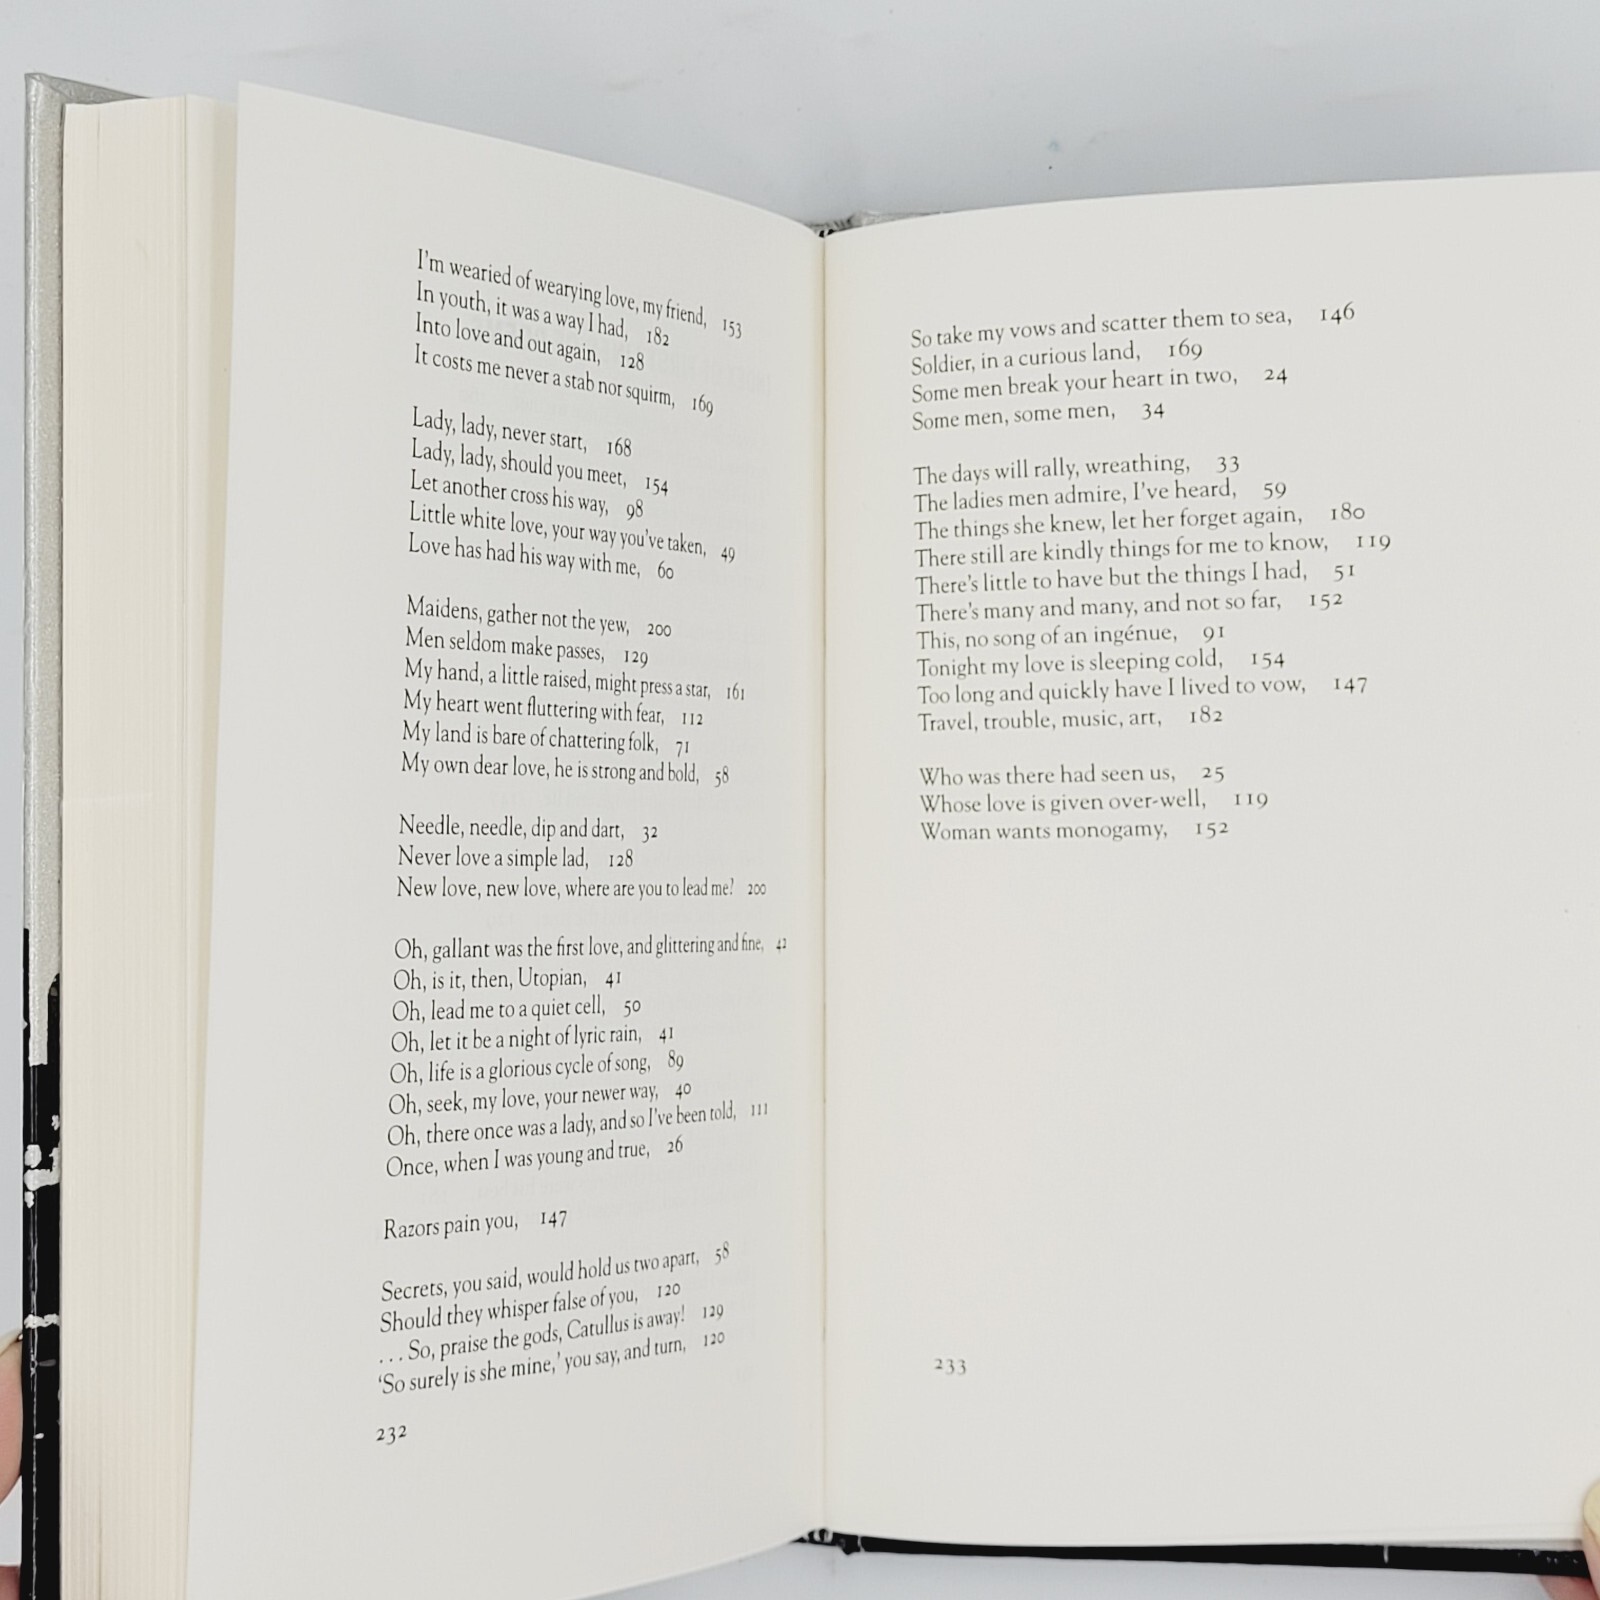 I'm wearied of wearying love, my friend, 153
In youth, it was a way I had, 182
Into love and out again, 128
It costs me never a stab nor squirm, 169
Lady, lady, never start, 168
Lady, lady, should you meet, 154
Let another cross his way, 98
Little white love, your way you've taken, 49
Love has had his way with me, 60
Maidens, gather not the yew, 200
Men seldom make passes, 129
My hand, a little raised, might press a star, 161
My heart went fluttering with fear, 112
My land is bare of chattering folk, 71
My own dear love, he is strong and bold, 58
Needle, needle, dip and dart, 32
Never love a simple lad, 128
New love, new love, where are you to lead me? 200
Oh, gallant was the first love, and glittering and fine, 42
Oh, is it, then, Utopian, 41
Oh, lead me to a quiet cell, 50
Oh, let it be a night of lyric rain, 41
Oh, life is a glorious cycle of song, 89
Oh, seek, my love, your newer way, 40
Oh, there once was a lady, and so I've been told, 111
Once, when I was young and true, 26
Razors pain you, 147
Secrets, you said, would hold us two apart, 58
Should they whisper false of you, 120
... So, praise the gods, Catullus is away! 129
'So surely is she mine,' you say, and turn, 120
232
So take my vows and scatter them to sea, 146
Soldier, in a curious land, 169
Some men break your heart in two, 24
Some men, some men, 34
The days will rally, wreathing, 33
The ladies men admire, I've heard, 59
The things she knew, let her forget again, 180
There still are kindly things for me to know, 119
There's little to have but the things I had, 51
There's many and many, and not so far, 152
This, no song of an ingénue, 91
Tonight my love is sleeping cold, 154
Too long and quickly have I lived to vow, 147
Travel, trouble, music, art, 182
Who was there had seen us, 25
Whose love is given over-well, 119
Woman wants monogamy, 152
233